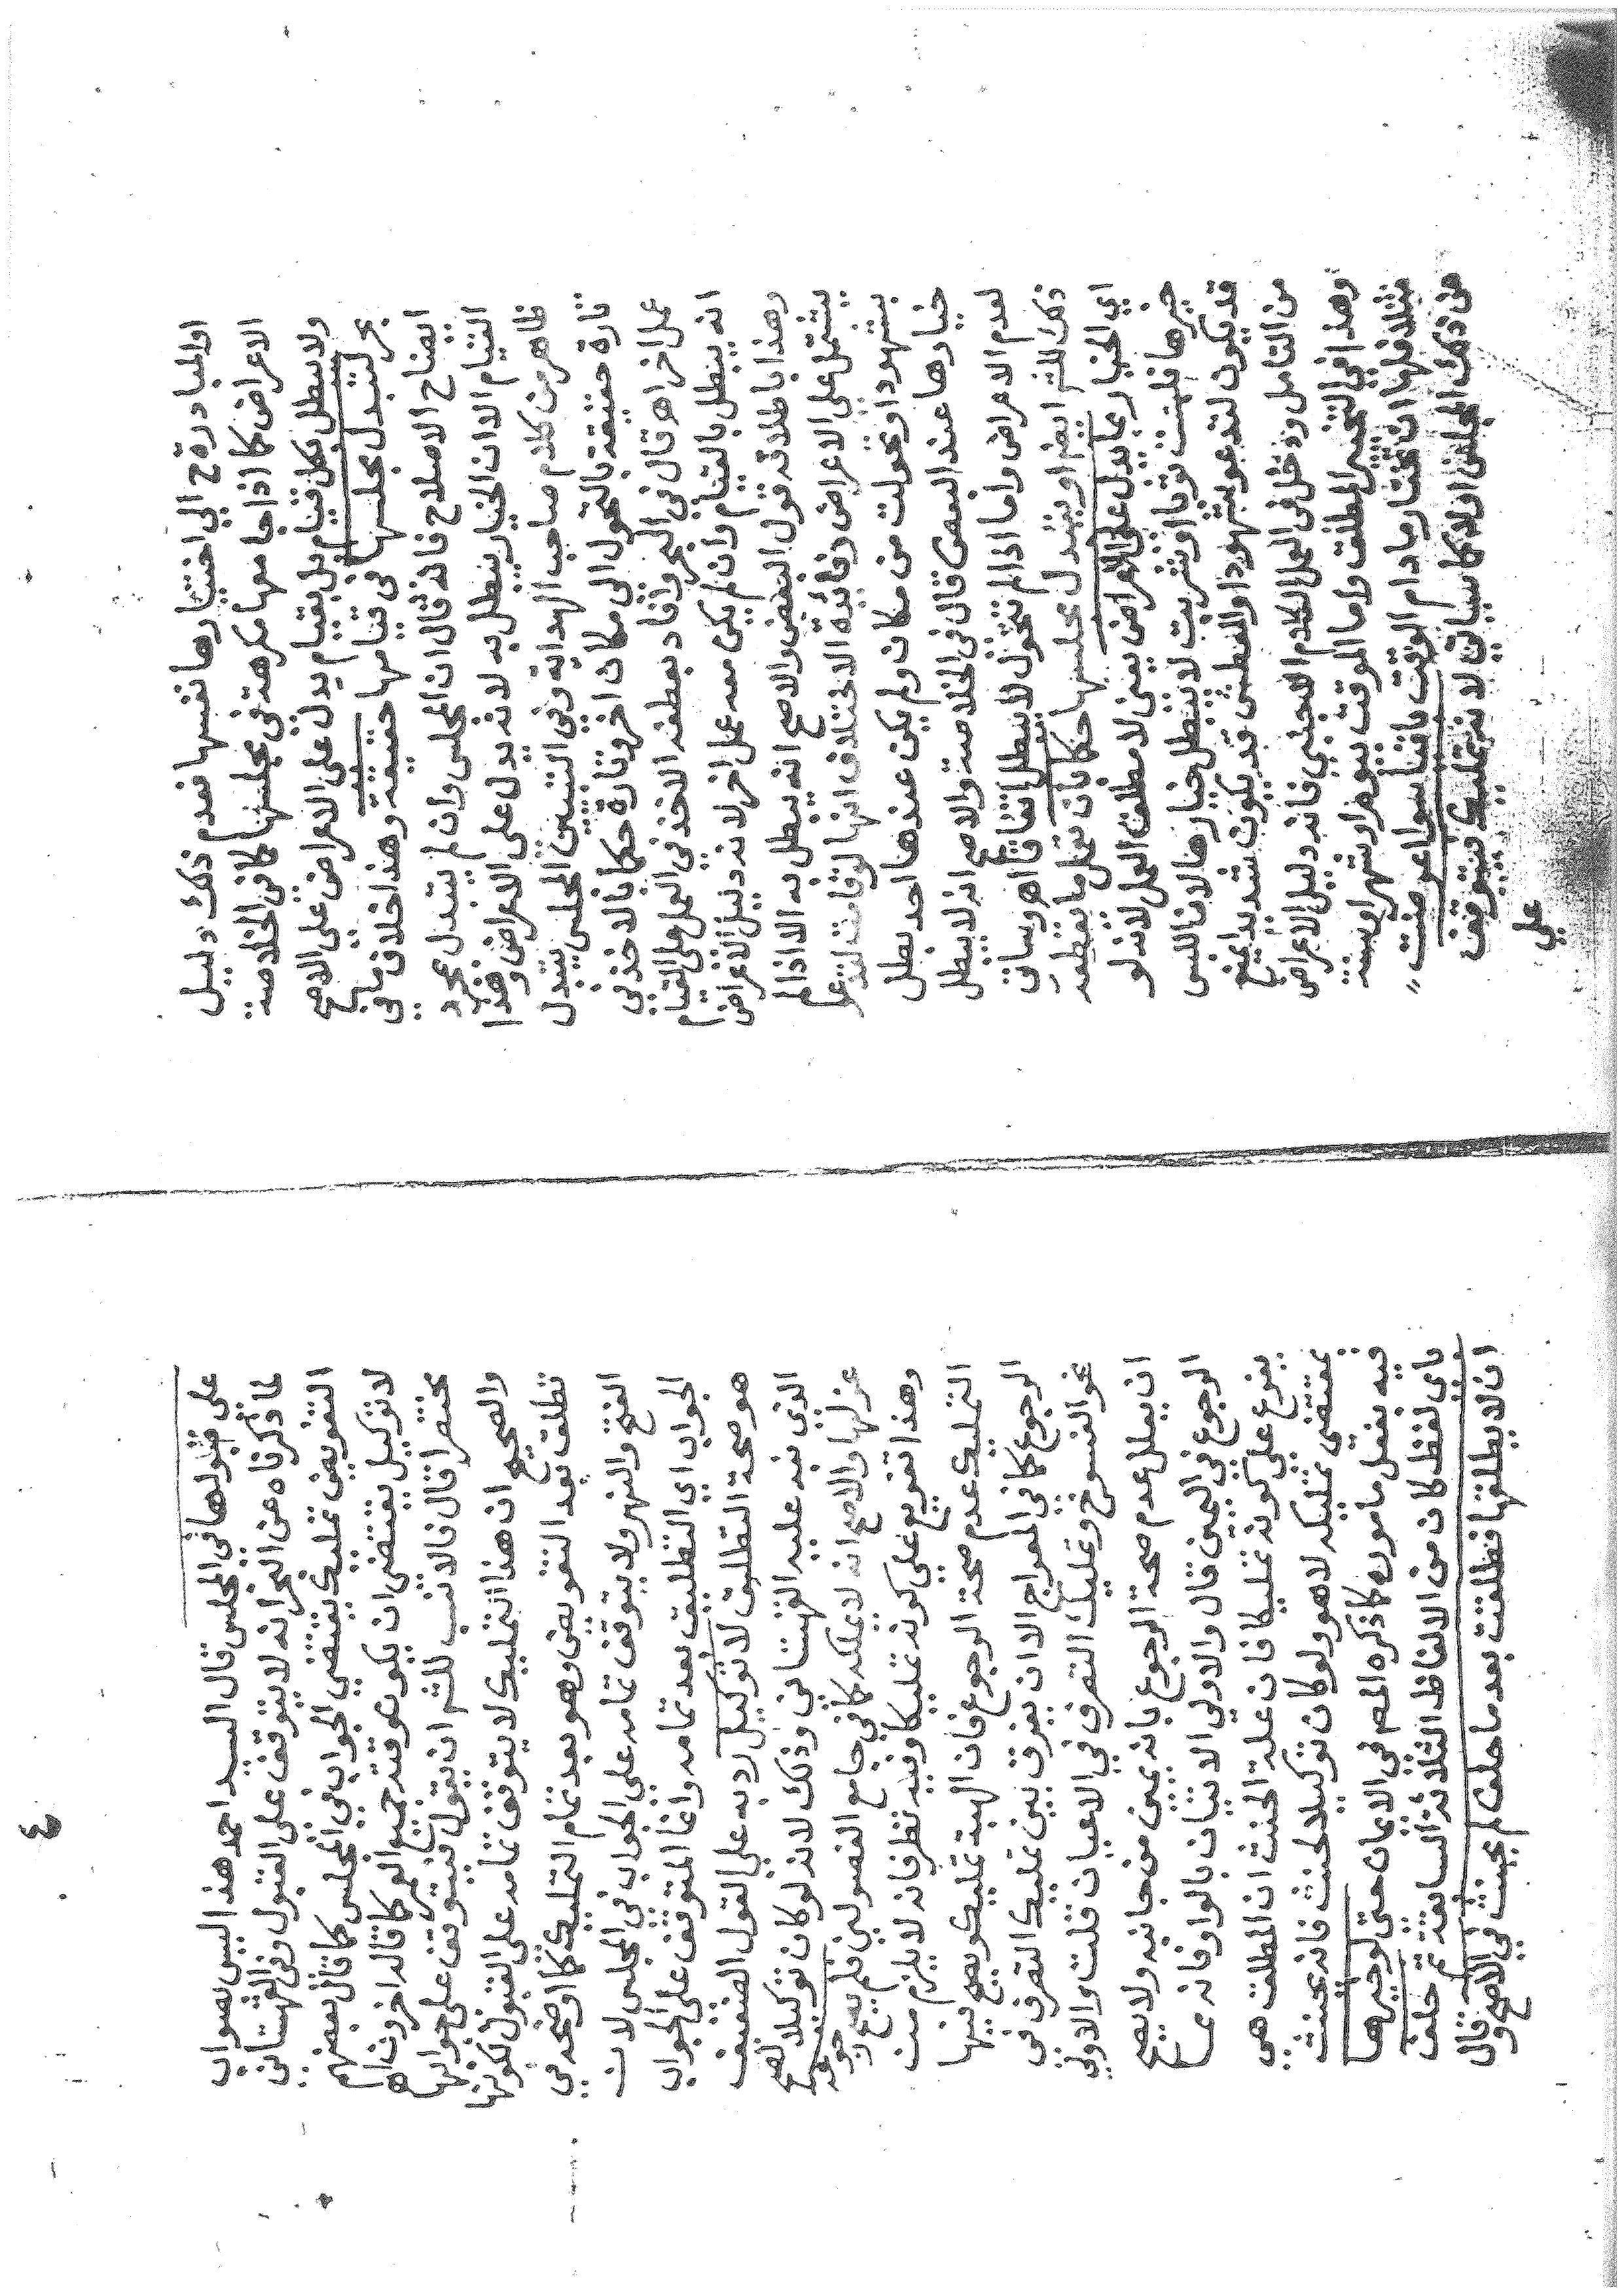 او المبادرة ح الي اختيارها نفسها فعدم ذلك دليل
الاعراض كما اذا جامعها مكرهة في مجلسها كما في الخلاصة
ولا يبطل بكل قيام بل بقيام يدل علي الاعراض علي الاصح
لتبدل مجلسها في قيامها حقيقة وهذا خلاف ما في
ايضاح الاصلاح فانه قال ان المجلس وان لم يتبدل بمجرد
القيام الا ان الخيار يبطل به لانه يدل علي الاعراض وهذا
ظاهر من كلام صاحب الهداية وفي التبيين المجلس يتبدل
تارة حقيقة بالتحول الي مكان اخر وتارة حكما بالاخذ في
عمل اخر اه قال في البحر وافاد بعطفه الاخذ في العمل علي القيام
انه يبطل بالقيام وان لم يكن معه عمل اخر لانه دليل الاعراض
وهذا باطلاقه قول البعض والاصح انه يبطل به الا اذا لم
يشتمل علي الاعراض وفائدة الاختلاف انها لو قامت لتدعو
بشهود او تحولت من مكان ولم يكن عندها احد بطل
خيارها عند البعض قال في الخلاصة والاصح انه لا يبطل
لعدم الاعراض واما اذا لم تتحول لا يبطل اتفاقا اه وسياتي
ذكر المتن ايضا او يتبدل مجلسها حكما بان تعمل ما يقطعه
اي الخيار مما يدل علي الاعراض يعني لا مطلق العمل لانه لو
خيرها فلبست ثوبا او شربت لا يبطل خيارها لان اللبس
قد يكون لتدعو شهودا والعطش قد يكون شديدا يمنع
من التامل ودخل في العمل الكلام الاجنبي فانه دليل الاعراض
وهذا في التخيير المطلق واما الموقت بيوم او شهر او سنة
مثلا فلها ان تختار ما دام الوقت باقيا سواء اعرضت
عن ذلك المجلس او لا كما سياتي لانه تمليك فيتوقف
علي
٤
علي قبولها في المجلس قال السيد احمد هذا ليس بصواب
لما ذكرناه عن البحر انه لا يتوقف علي القبول وفي القهستاني
التفويض تمليك يقتضي الجواب في المجلس كما قال بعضهم
لا توكيل يقتضي ان يكون عوقد حموالمر كما قاله اخرون اه
مختصرا قال فالانسب للشم ان يقول فيتوقف علي جوابها
والصحيح ان هذا التمليك لا يتوقف تمامه علي القبول لكونها
تطلق بعد التفويض وهو بعد تمام التمليك كما اوضحه في
الفتح والنهر ولا يتوقف تمامه علي الجواب في المجلس لان
الجواب اي التطليق بعد تمامه وانما المتوقف علي الجواب
هو صحة التطليق لا توكيل رد به علي القول الضعيف
الذي نبه عليه القهستاني وذلك لانه لو كان توكيلا لصح
عزلها والاصح انه لا يملكه كما في جامع الفصولين فلم يصح رجوعه
وهذا تفريع علي كونه تمليكا وفيه نظر فانه لا يلزم من
التمليك عدم صحة الرجوع فان الهبة تمليك ويصح فيها
الرجوع كما في المعراج الا ان يفرق بين تمليك التصرف في
نحو الفسوخ وتمليك التصرف في الاعيان قلت والاولي
ان يعلل عدم صحة الرجوع بانه يمين من جانبه ولا يصح
الرجوع في اليمين قال والاولي الاتيان بالواو فانه مما
يفرع علي كونه تمليكا فان علة الحنث ان المطلق هي
بمقتضي تمليكه لا هو ولو كان توكيلا لحنث فانه يحنث
فيه بفعل ماموره كما ذكره المصم في الايمان حتي لو خيرها
باي لفظ كان من الالفاظ الثلاثة السابقة ثم حلف
ان لا يطلقها فطلقت بعد ما حلف لم يحنث في الاصح وقال